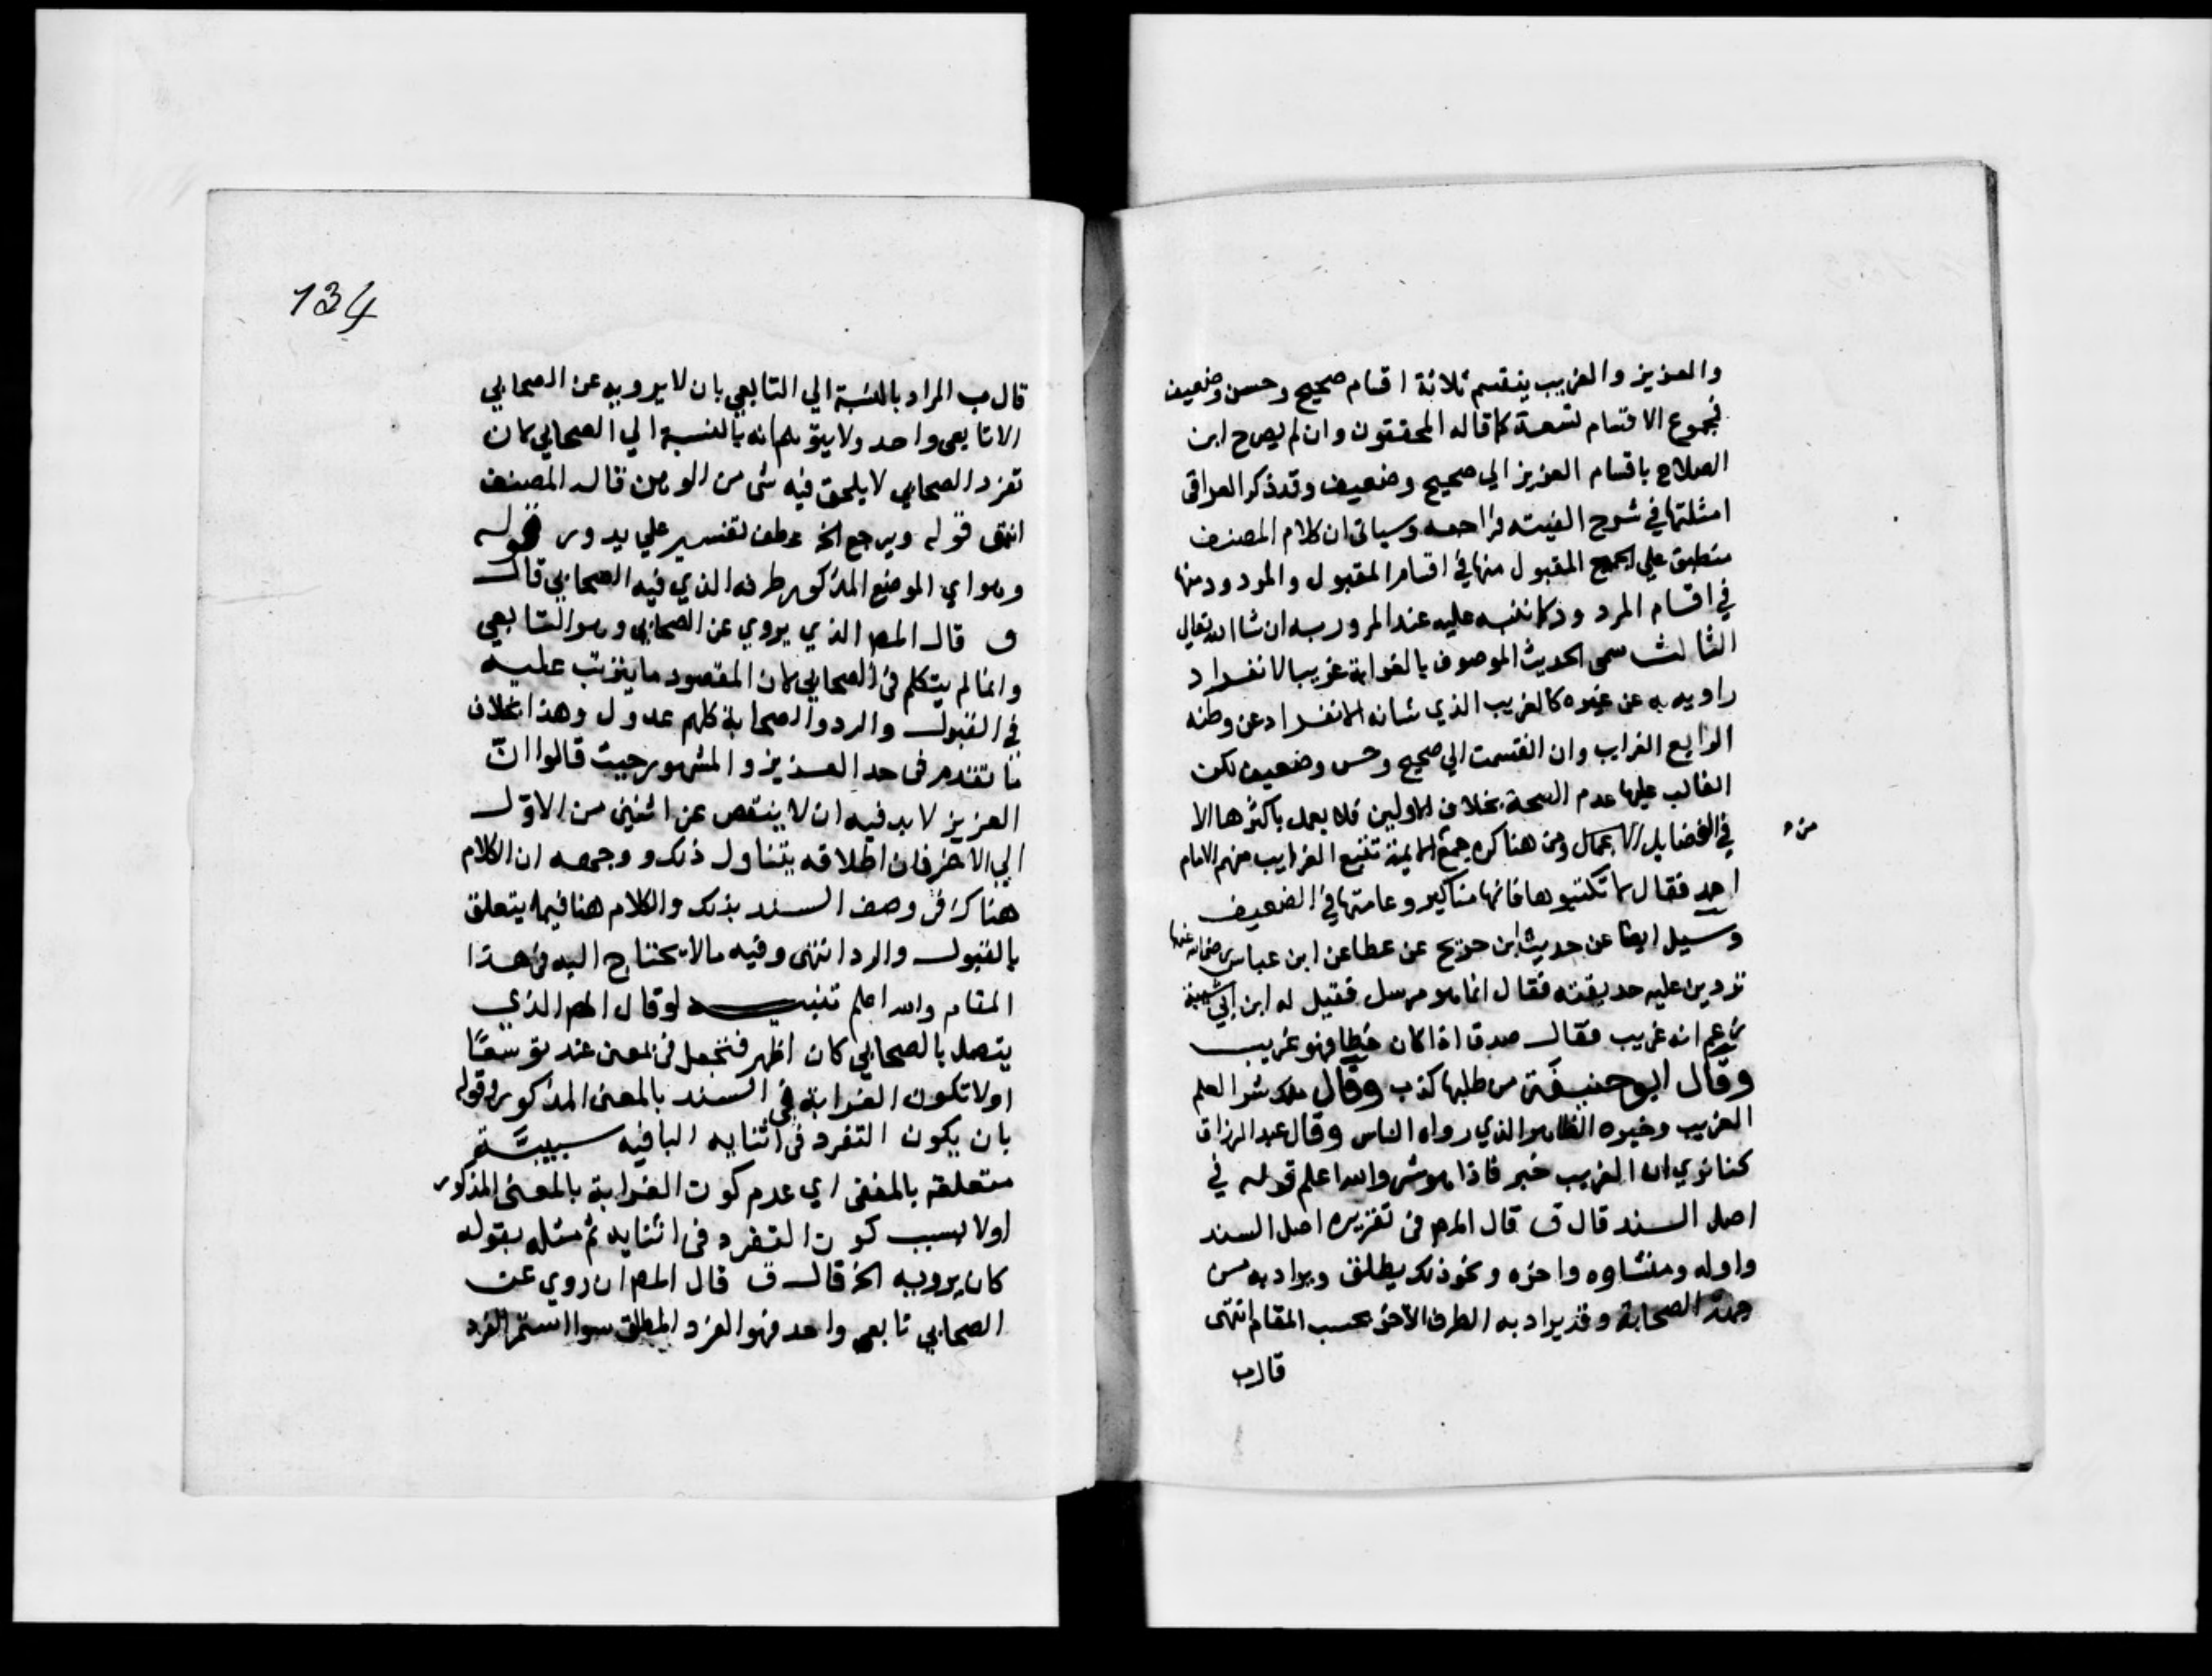 والعزيز والغريب ينقسم ثلاثة اقسام صحيح وحسن وضعيف
فمجموع الاقسام تسعة كما قاله المحققون وان لم يصرح ابن
الصلاح باقسام العزيز الي صحيح وضعيف وقد ذكر العراقي
امثلتها في شرح الفيته فراجعه وسياتي ان كلام المصنف
منطبق علي الجميع المقبول منها في اقسام المقبول والمردود منها
في اقسام المردود كما ننبه عليه عند المرور به ان شا الله تعالي
الثالث سمى الحديث الموصوف بالغرابة غريبا لانفراد
راويه به عن غيره كالغريب الذي شانه الانفراد عن وطنه
الرابع الغرايب وان انقسمت الي صحيح وحسن وضعيف لكن
الغالب عليها عدم الصحة بخلاف الاولين فلا يعمل باكثرها الا
في فضايل الاعمال ومن هنا كره جمع الايمة تتبع الغرايب منهم الامام
احمد فقال لا تكتبوها فانها مناكير وعامتها في الضعيف
وسيل ايضا عن حديث ابن جريج عن عطا عن ابن عباس رضي الله عنهما
تردين عليه حديقته فقال انما هو مرسل فقيل له ابن ابي شيبة
زعم انه غريب فقال صدق اذا كان خطا فهو غريب
وقال ابو حنيفة من طلبها كذب وقال ملك شر العلم
الغريب وخيره الظاهر الذي رواه الناس وقال عبد الرزاق
كنا نري ان الغريب خير فاذا هو شر والله اعلم قوله في
اصل السند قال ق قال المص في تقريره اصل السند
واوله ومنشاوه واخره ونحو ذلك يطلق ويراد به من
جهة الصحابة وقد يراد به الطرف الآخر بحسب المقام انتهى
قال ب
134
قال ب المراد بالنسبة الي التابعي بان لا يرويه عن الصحابي
الا تابعي واحد ولا يتوهم انه بالنسبة الي الصحابي لان
تفرد الصحابي لا يلحق فيه شي من الوهن قاله المصنف
انتهى قوله ويرجع الخ عطف تفسير علي يدور قوله
وهو اي الموضع المذكور طرفه الذي فيه الصحابي قال
ق قال المص الذي يروي عن الصحابي وهو التابعي
وانما لم يتكلم في الصحابي لان المقصود ما يترتب عليه
في القبول والرد والصحابة كلهم عدول وهذا بخلاف
ما تقدم في حد العزيز والمشهور حيث قالوا ان
العزيز لا بد فيه ان لا ينقص عن اثنين من الاول
الي الآخر فان اطلاقه يتناول ذلك ووجهه ان الكلام
هناك في وصف السند بذلك والكلام هنا فيما يتعلق
بالقبول والرد انتهى وفيه ما لا يحتاج اليه في هذا
المقام والله اعلم تنبيه لو قال المص الذي
يتصل بالصحابي كان اظهر فنجعل في بمعنى عند توسعًا
او لا تكون الغرابة في السند بالمعنى المذكور وقوله
بان يكون التفرد في اثنايه البا فيه سببية
متعلقة بالمنفى اي عدم كون الغرابة بالمعنى المذكور
او لا بسبب كون التفرد في اثنايه ثم مثله بقوله
كان يرويه الخ قال ق قال المص ان روي عن
الصحابي تابعي واحد فهو الفرد المطلق سوا استمر التفرد